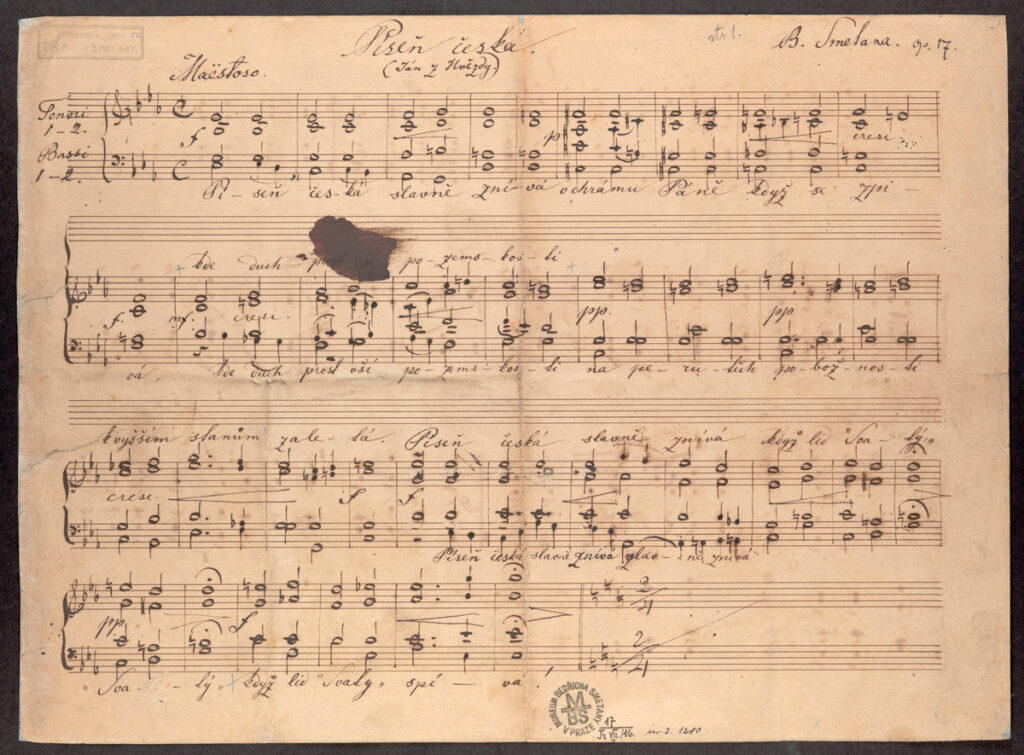 BEDŘICHA SMETANY.
Píseň česká.
str 1.
B. Smetana. op. 17.
(Ján z Hvězdy)
Maëstoso.
Tenori
1-2.
Bassi
1-2.
f
p
cresc.
Pí - seň čes - ká slavně zní - vá v chrámu Páně když se zpí -
kde duch po - zems - kos - ti
f. mf. cresc. pp. pp
vá, kde duch prost vší po - zems - kos - ti na pe - ru - tích po - bož - nos - ti
k vyšším stanům zale - tá. Píseň česká slavně znívá když lid "Sva - tý„
cresc. f f
Píseň česká slavně znívá slav - ně znívá
pp f
2/4
2/4
„Sva - tý„ když lid "Svatý„ spí - vá.
MUSEUM BEDŘICHA SMETANY V PRAZE
M
BS
17